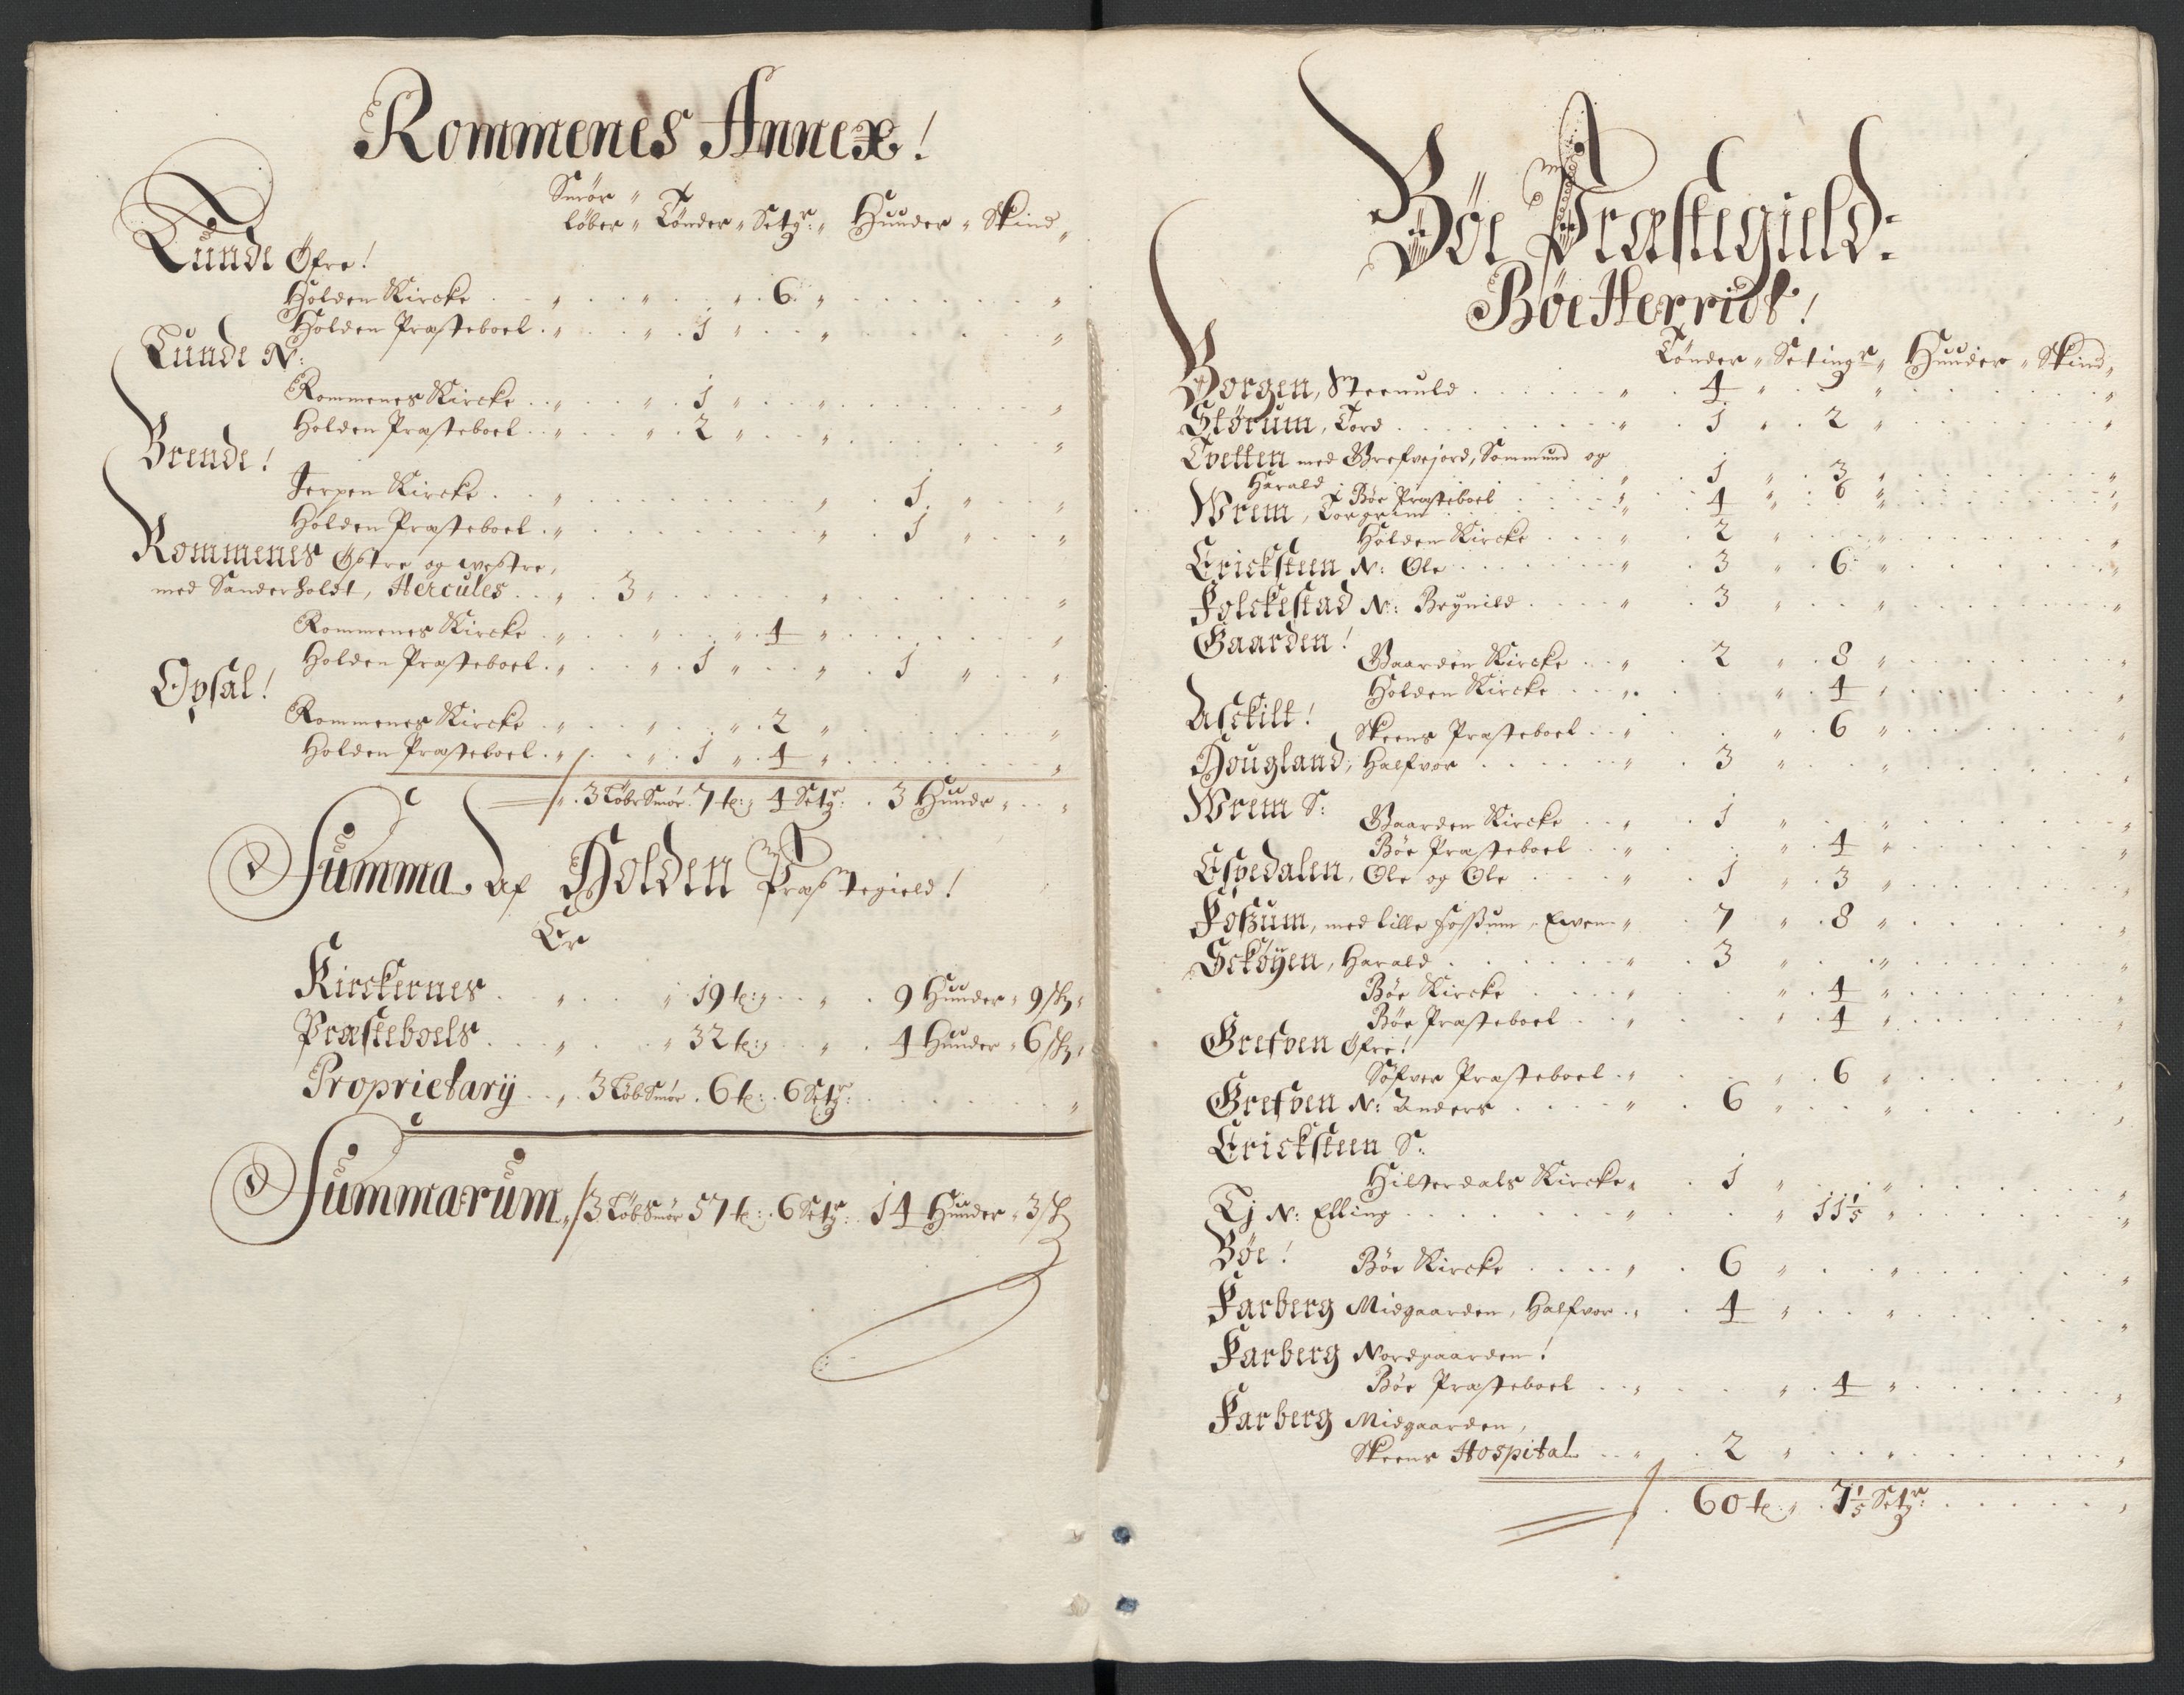 Rommenes Annex!
Smør "
løber " Tønder " Setgr: " Huuder " Skind "
Lunde Øfre!
Holden Kircke . . " . . " . . " 6 " . . . "
Holden Præsteboel . " . . " . 1 " . . " . . . "
Lunde N:
Rommenes Kircke . . " . . " . 1 " . . " . . . "
Holden Præsteboel . . " . . " . 2 " . . " . . . "
Brende!
Jerpen Kircke . . " . . . " . 1 " . . "
Holden Præsteboel . " . . . " . 1 " . . "
Rommenes Østre og westre,
med Sanderholdt, Hercules . . " . 3 " . . . " . . . "
Rommenes Kircke . " . . " . . " 4 " . . . "
Holden Præsteboel . " . . " . 1 " . . " . 1 " . . "
Opsal!
Rommenes Kircke . " . . " . . " 2 " . . . "
Holden Præsteboel . " . . " . 1 " . 4 " . . . "
" . 3 Løb Smør . 7 t: " 4 Setgr: . 3 Huudr " . . "
Summa. Af Holden Præstegield!
Er
Kirckernes . . " . . " 19 t: " . . " . 9 Huuder " 9 sk "
Præsteboels . . . " . . " 32 t: " . . " . 4 Huuder " 6 sk "
Proprietarÿ . . " . 3 Løb Smør . 6 t: . 6 Setgr: . . . "
Summarum " 3 Løb Smør 57 t: . 6 Setgr: . 14 Huuder " 3 sk
Bøe Præstegield:
Bøe Herridt!
Tønder " Setingr " Huuder " Skind "
Borgen, Steenuld . . . " . 4 " . 3 " . . . "
Størum, Tord . . . " . 1 " . 2 " . . . "
Tvetten med Grefvejord, Sammund og
Harald . . . " . 1 " . 3 " . . . "
Bøe Præsteboel . . . " . 4 " . 6 " . . . "
Wrem, Torgrim . . .
Holden Kircke . . . " . 2 " . . " . . . "
Ericksteen N: Ole . . . " . 3 " . 6 " . . . "
Folckestad N: Brynild . . . " . 3 " . . " . . . "
Gaarden!
Gaarden Kircke . . " . 2 " . 8 " . . . "
Holden Kircke . . " . . " . 4 " . . . "
Asckilt!
Skeens Præsteboel . . " . . " . 6 " . . . "
Hougland, Halfvor . . . " . 3 " . . " . . . "
Wrem S:
Gaarden Kircke . . " . 1 " . . " . . . "
Bøe Præsteboel . . " . . " . 4 " . . . "
Espedalen, Ole og Ole . . . " . 1 " . 3 " . . . "
Foszum, med lille Foszum, Ewen " . 7 " . 8 " . . . "
Sckøÿen, Harald . . . " . 3 " . . " . . . "
Bøe Kircke . . . " . . " . 4 " . . . "
Bøe Præsteboel . . " . . " . 4 " . . . "
Grefven Øfre!
Søfver Præsteboel . " . . " . 6 " . . . "
Grefven N: Anders . . . " . 6 " . . " . . . "
Ericksteen S:
Hilterdals Kircke " . 1 " . . " . . . "
Lj N: Elling . . . " . . " 11 1/5 " . . . "
Bøe!
Bøe Kircke . . . " . 6 " . . " . . . "
Farberg Midgaarden, Halfvor . " . 4 " . . " . . . "
Farberg Nordgaarden!
Bøe Præsteboel . . " . . " . 4 " . . . "
Farberg Midgaarden,
Skeens Hospital . . " . 2 " . . " . . . "
60 t: " . 7 1/5 Setgr: . . . "